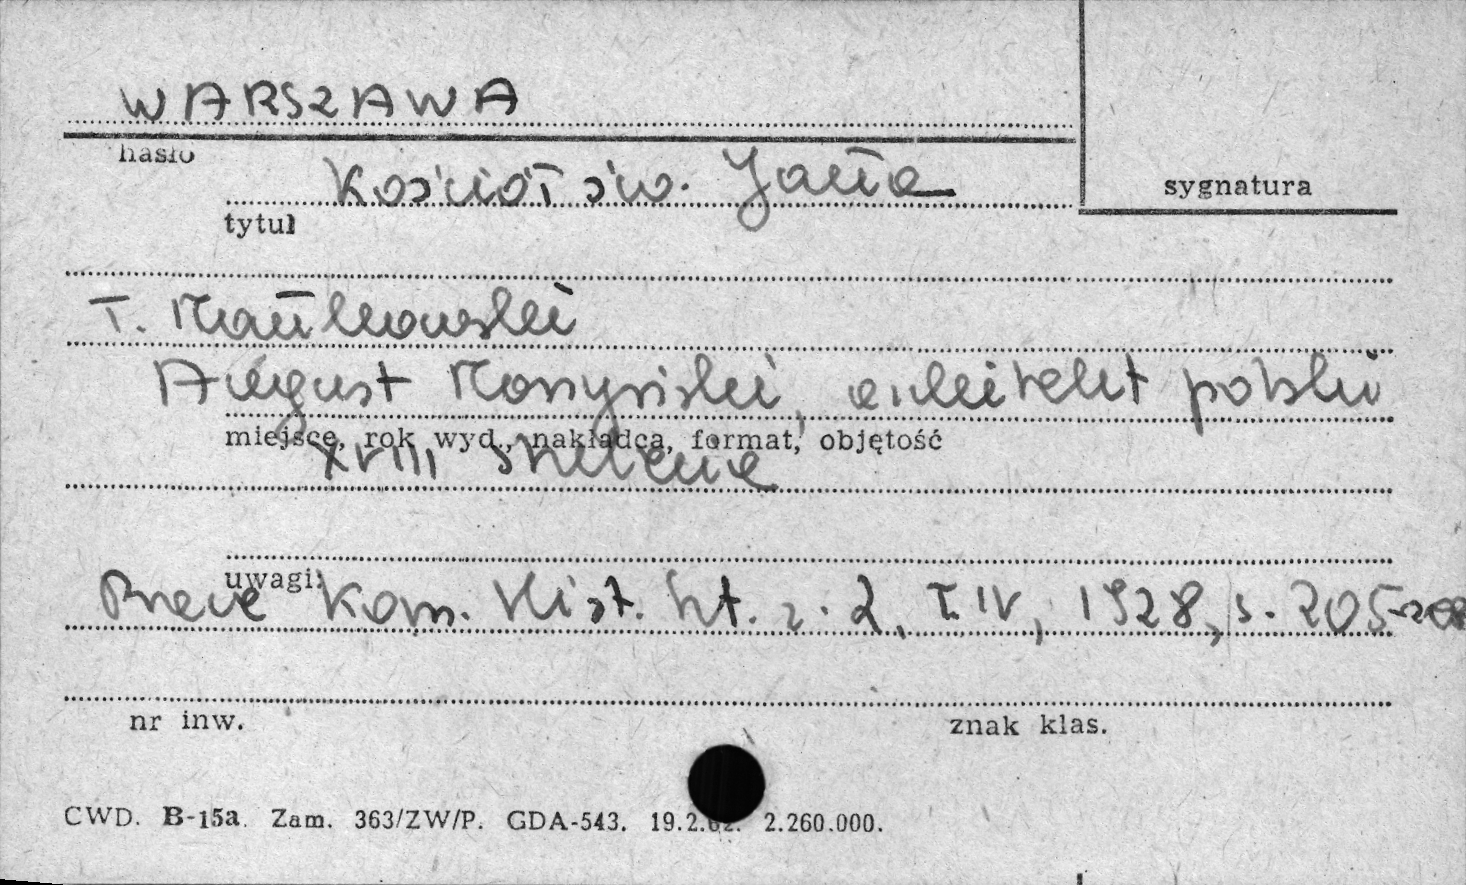 WARSZAWA
hasło
Kościół św. Jana
sygnatura
tytuł
T. Mańkowski
August Moszyński, architekt polski
miejsce, rok wyd., nakładca, format, objętość
XVIII stulecia
uwagi:
Prace Kom. Hist. Szt. z. 2, T. IV, 1928, s. 205
nr inw.
znak klas.
CWD. B-15a. Zam. 363/ZW/P. GDA-543. 19.2.62. 2.260.000.